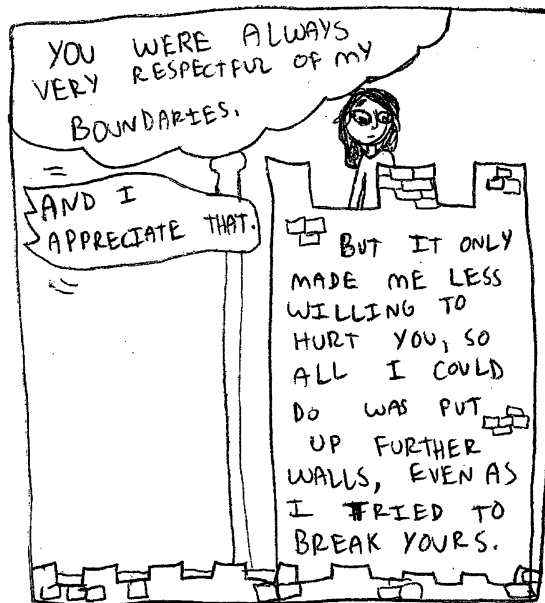 YOU WERE ALWAYS
VERY RESPECTFUL OF MY
BOUNDARIES.
AND I
APPRECIATE THAT.
BUT IT ONLY
MADE ME LESS
WILLING TO
HURT YOU, SO
ALL I COULD
DO WAS PUT
UP FURTHER
WALLS, EVEN AS
I TRIED TO
BREAK YOURS.